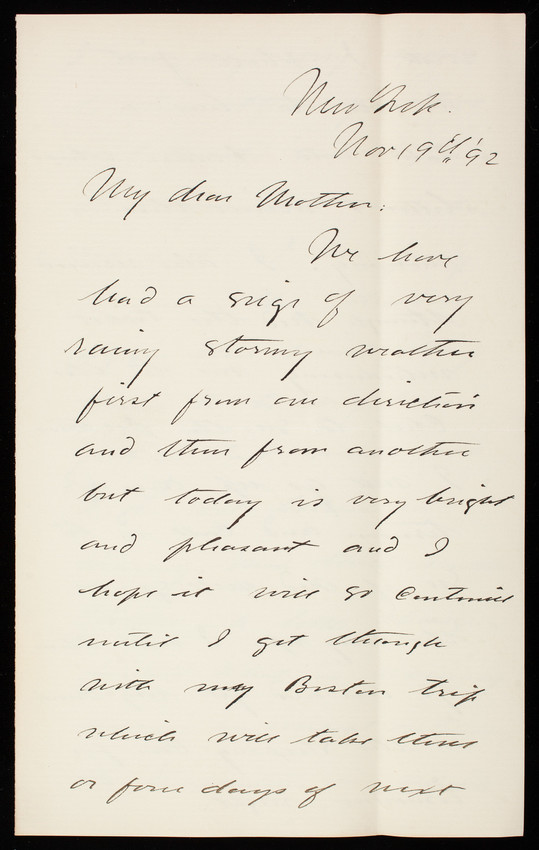 New York.
Nov 19th '92
My dear Mother:
We have
had a seige of very
rainy stormy weather
first from one direction
and then from another
but today is very bright
and pleasant and I
hope it will so continue
until I get through
with my Boston trip
which will take three
or four days of next